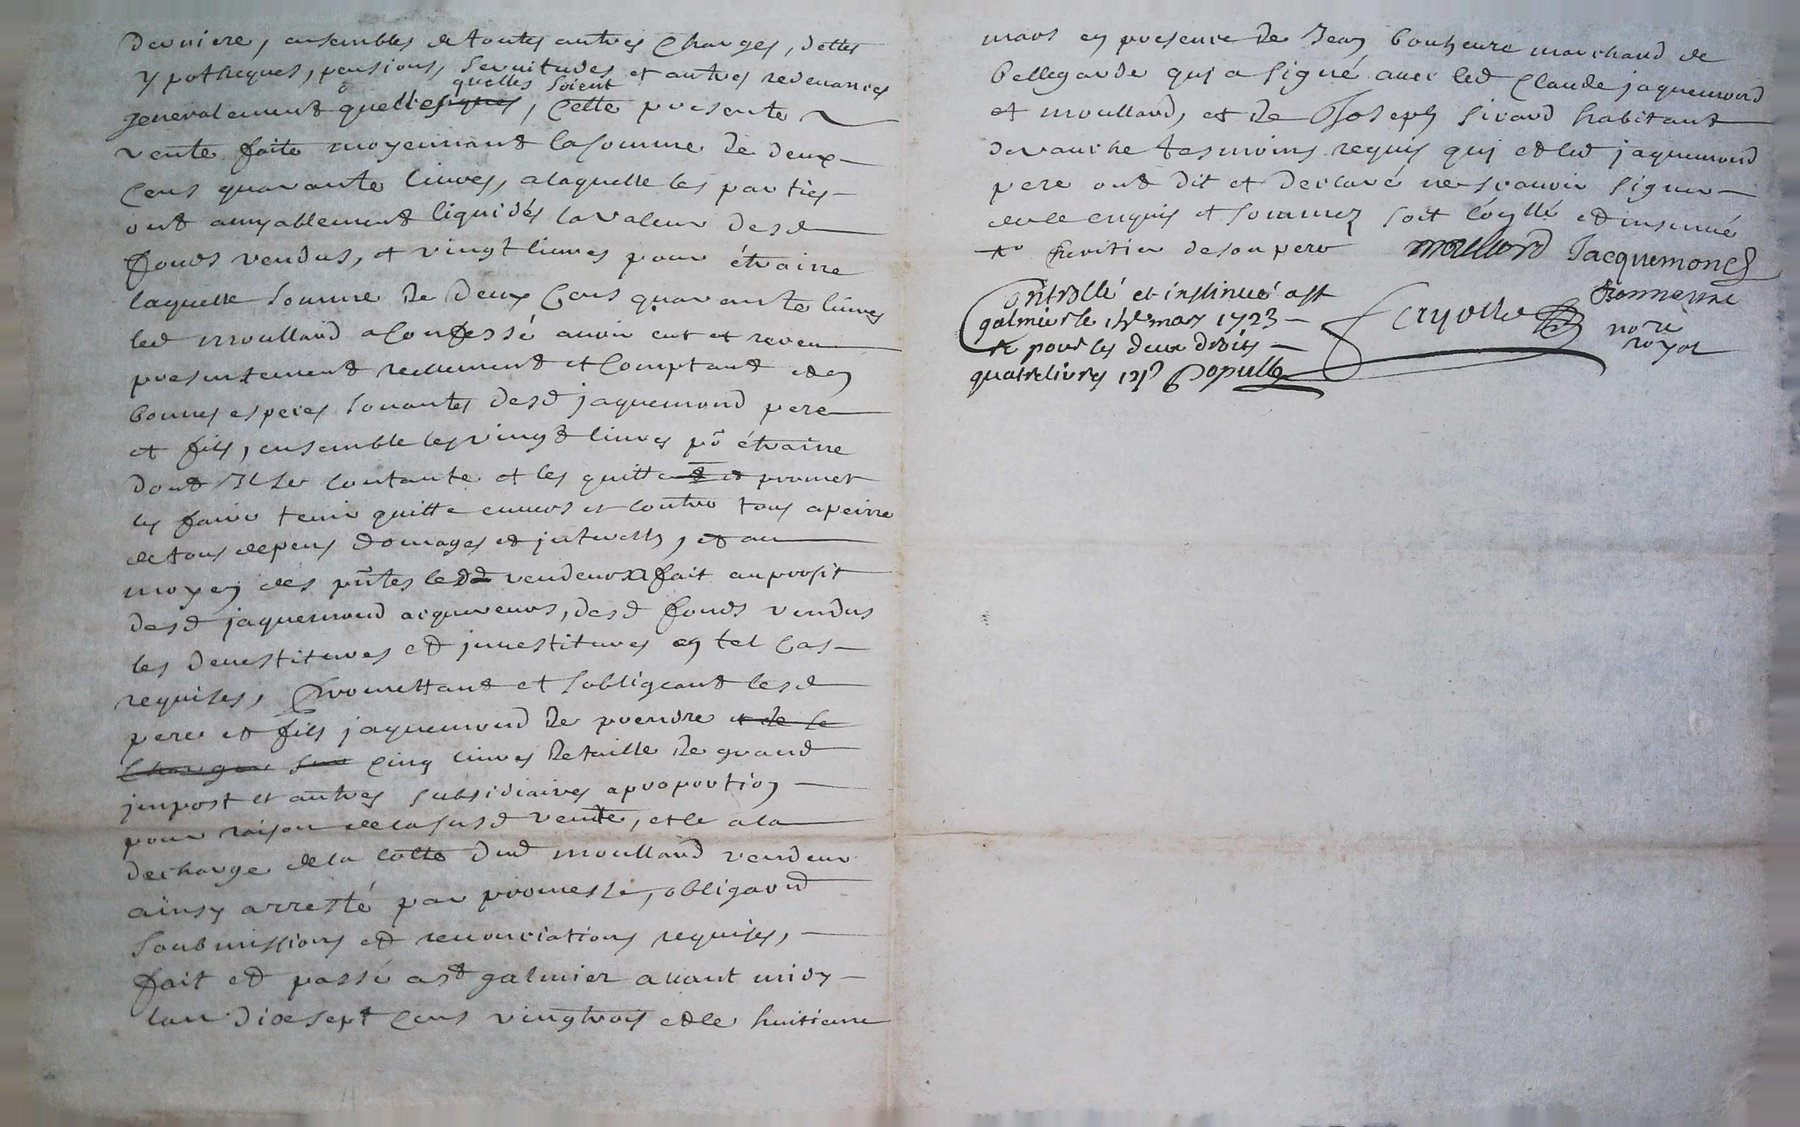 derniere, ensembles de toutes autres charges, dettes
ypotheques, pensions, servitudes et autres redevances
quelles soient
generalement quellesques, cette presente
vente faite moyennant la somme de deux
cens quarante livres, a laquelle les parties
ont amyablement liquidés la valeur desd
fonds vendus, et vingt livres pour étraine
laquelle somme de deux cens quarante livres
led moullard a confessé avoir eut et receu
presentement reellement et comptant et en
bonnes especes sonantes desd jaquemond pere
et fils, ensemble les vingt livres pr étraine
dont Il se contante et les quitte et promet
les faire tenir quitte envers et contre tous a peine
de tous depens domages et jnterests, et au
moyen des pntes led vendeur a fait au profit
desd jaquemond acquereurs, desd fonds vendus
les devestitures et jnvestitures en tel cas
requises, Promettant et sobligeant lesd
pere et fils jaquemond de prendre et de se
charger sur cinq livres de taille de grand
jmpost et autres subsidiaires a proportion
pour raison de la susd vente, et le a la
decharge de la cotte dud moullard vendeur
ainsy arresté par promesse, obligaond
soubmissions et renonciations requises,
fait et passé a st galmier avant midy
lan dixsept cens vingtrois et le huitieme
mars en presence de Jean bonheure marchand de
bellegarde qui a signé avec led Claude jaquemond
et moullard, et de Joseph sirand habitant
tesmoins requis qui et led jaquemond
pere ont dit et declaré ne scavoir signer
de ce enquis et sommez soit et insinué
heritier de son pere moullard Jacquemond
Controllé et insinué a st
galmier le 14e mars 1723
R pour les deux droits
quatre livres 12s Populle
Bonneure
nore
royal